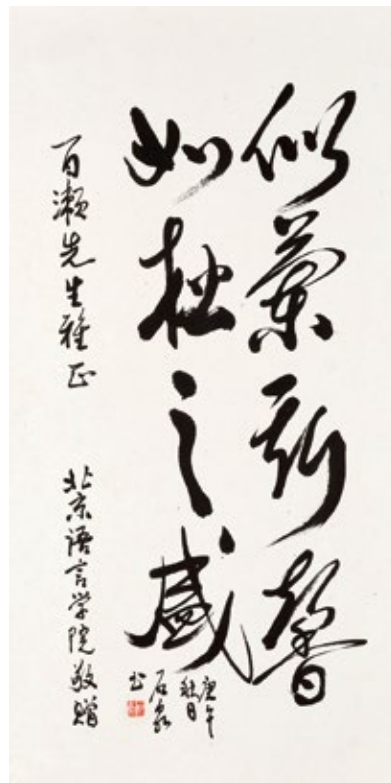 似蘭斯馨
如松之盛
庚午
秋日
石泉
书
百瀬先生雅正
北京语言学院敬赠